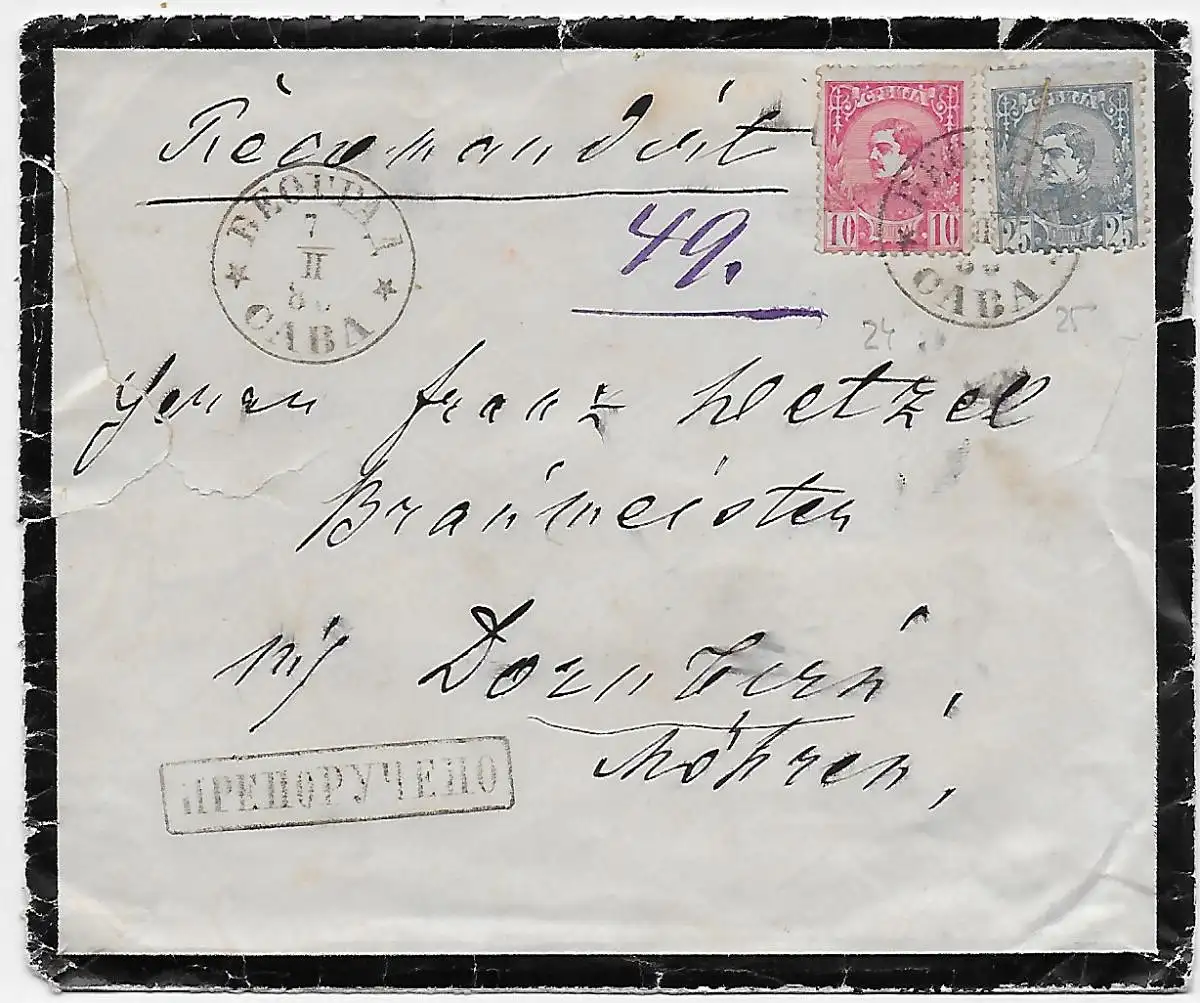 Recomandirt
СРБИЈА
10 10
СРБИЈА
25 25
БЕОГРАД
7
II
САВА
49.
САВА
24
25
Herrn Franz Wetzel
Braumeister
in
Mähren,
ПРЕПОРУЧЕНО